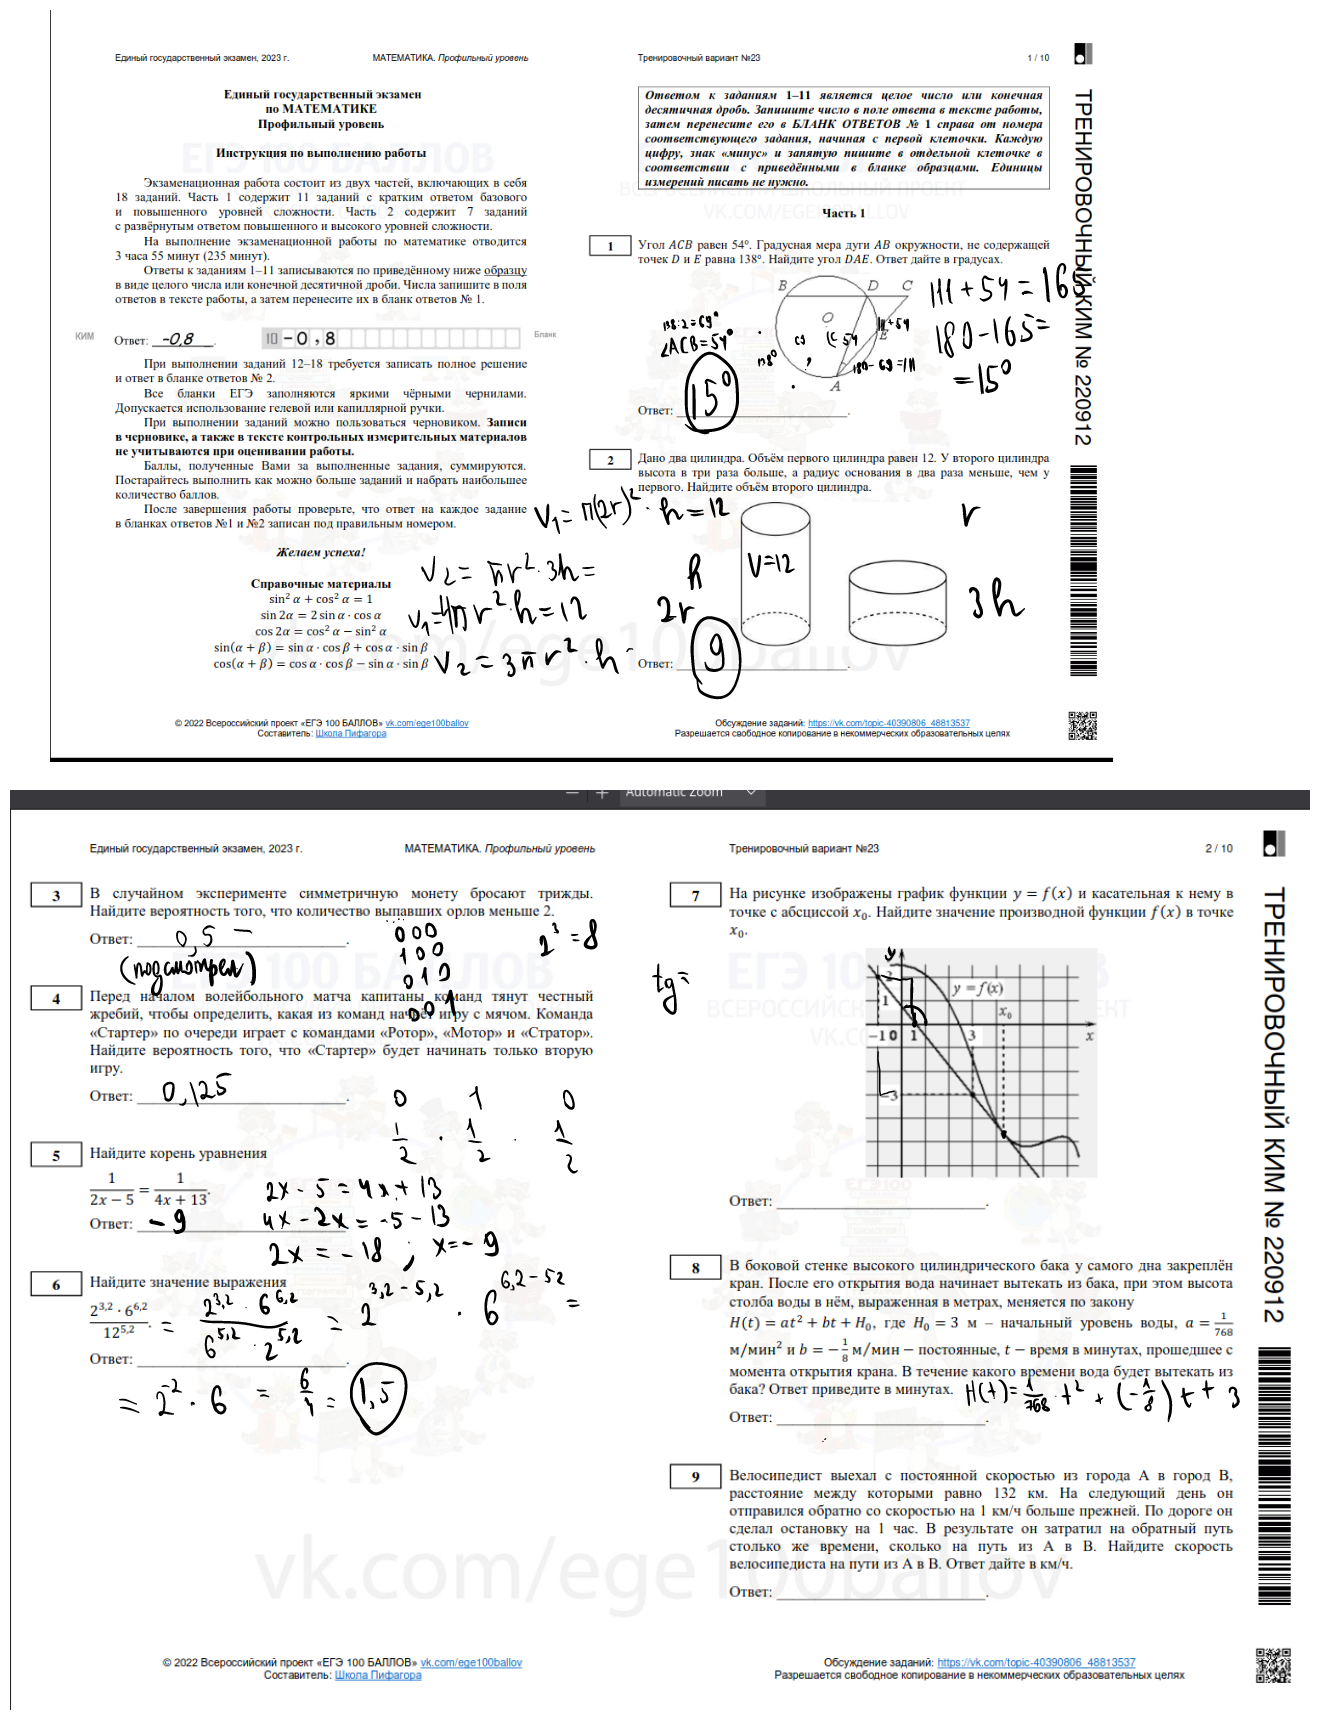 Единый государственный экзамен, 2023 г. МАТЕМАТИКА. Профильный уровень
Единый государственный экзамен
по МАТЕМАТИКЕ
Профильный уровень
Инструкция по выполнению работы
Экзаменационная работа состоит из двух частей, включающих в себя
18 заданий. Часть 1 содержит 11 заданий с кратким ответом базового
и повышенного уровней сложности. Часть 2 содержит 7 заданий
с развёрнутым ответом повышенного и высокого уровней сложности.
На выполнение экзаменационной работы по математике отводится
3 часа 55 минут (235 минут).
Ответы к заданиям 1–11 записываются по приведённому ниже образцу
в виде целого числа или конечной десятичной дроби. Числа запишите в поля
ответов в тексте работы, а затем перенесите их в бланк ответов № 1.
КИМ Ответ: –0,8. 10 -0,8 Бланк
При выполнении заданий 12–18 требуется записать полное решение
и ответ в бланке ответов № 2.
Все бланки ЕГЭ заполняются яркими чёрными чернилами.
Допускается использование гелевой или капиллярной ручки.
При выполнении заданий можно пользоваться черновиком. Записи
в черновике, а также в тексте контрольных измерительных материалов
не учитываются при оценивании работы.
Баллы, полученные Вами за выполненные задания, суммируются.
Постарайтесь выполнить как можно больше заданий и набрать наибольшее
количество баллов.
После завершения работы проверьте, что ответ на каждое задание
в бланках ответов №1 и №2 записан под правильным номером.
Желаем успеха!
Справочные материалы
sin² α + cos² α = 1
sin 2α = 2 sin α · cos α
cos 2α = cos² α − sin² α
sin(α + β) = sin α · cos β + cos α · sin β
cos(α + β) = cos α · cos β − sin α · sin β
© 2022 Всероссийский проект «ЕГЭ 100 БАЛЛОВ» vk.com/ege100ballov
Составитель: Школа Пифагора
Тренировочный вариант №23 1 / 10
Ответом к заданиям 1–11 является целое число или конечная
десятичная дробь. Запишите число в поле ответа в тексте работы,
затем перенесите его в БЛАНК ОТВЕТОВ № 1 справа от номера
соответствующего задания, начиная с первой клеточки. Каждую
цифру, знак «минус» и запятую пишите в отдельной клеточке в
соответствии с приведёнными в бланке образцами. Единицы
измерений писать не нужно.
Часть 1
1 Угол ACB равен 54°. Градусная мера дуги AB окружности, не содержащей
точек D и E равна 138°. Найдите угол DAE. Ответ дайте в градусах.
B D C
O
E
A
138:2=69°
∠ACB=54°
138°
54
180-69=111
111+54=165
180-165=
=15°
Ответ: 15°
2 Дано два цилиндра. Объём первого цилиндра равен 12. У второго цилиндра
высота в три раза больше, а радиус основания в два раза меньше, чем у
первого. Найдите объём второго цилиндра.
V₁=π(2r)²·h=12
V₂=πr²·3h=
V₁=4πr²·h=12
V₂=3πr²·h
h
2r
V=12
r
3h
Ответ: 9
Обсуждение заданий: https://vk.com/topic-40390806_48813537
Разрешается свободное копирование в некоммерческих образовательных целях
ТРЕНИРОВОЧНЫЙ КИМ № 220912
ЕГЭ 100 БАЛЛОВ
vk.com/ege100ballov
Automatic Zoom
Единый государственный экзамен, 2023 г. МАТЕМАТИКА. Профильный уровень
3 В случайном эксперименте симметричную монету бросают трижды.
Найдите вероятность того, что количество выпавших орлов меньше 2.
Ответ: 0,5
(подсмотрел)
000
100
010
001
2³=8
4 Перед началом волейбольного матча капитаны команд тянут честный
жребий, чтобы определить, какая из команд начнёт игру с мячом. Команда
«Стартер» по очереди играет с командами «Ротор», «Мотор» и «Стратор».
Найдите вероятность того, что «Стартер» будет начинать только вторую
игру.
Ответ: 0,125
0 1 0
1/2 · 1/2 · 1/2
5 Найдите корень уравнения
1/(2x − 5) = 1/(4x + 13).
Ответ: -9
2x-5=4x+13
4x-2x=-5-13
2x=-18; x=-9
6 Найдите значение выражения
(2^3,2 · 6^6,2)/12^5,2. = (2^3,2 · 6^6,2)/(6^5,2 · 2^5,2) = 2^(3,2-5,2) · 6^(6,2-52) =
Ответ:
= 2^-2 · 6 = 6/4 = 1,5
© 2022 Всероссийский проект «ЕГЭ 100 БАЛЛОВ» vk.com/ege100ballov
Составитель: Школа Пифагора
Тренировочный вариант №23 2 / 10
7 На рисунке изображены график функции y = f(x) и касательная к нему в
точке с абсциссой x₀. Найдите значение производной функции f(x) в точке
x₀.
tg=
y
2
1
y = f(x)
x₀
−1 0 1 3 x
−3
Ответ:
8 В боковой стенке высокого цилиндрического бака у самого дна закреплён
кран. После его открытия вода начинает вытекать из бака, при этом высота
столба воды в нём, выраженная в метрах, меняется по закону
H(t) = at² + bt + H₀, где H₀ = 3 м – начальный уровень воды, a = 1/768
м/мин² и b = −1/8 м/мин – постоянные, t – время в минутах, прошедшее с
момента открытия крана. В течение какого времени вода будет вытекать из
бака? Ответ приведите в минутах.
H(t)=1/768·t²+(-1/8)t+3
Ответ:
9 Велосипедист выехал с постоянной скоростью из города A в город B,
расстояние между которыми равно 132 км. На следующий день он
отправился обратно со скоростью на 1 км/ч больше прежней. По дороге он
сделал остановку на 1 час. В результате он затратил на обратный путь
столько же времени, сколько на путь из A в B. Найдите скорость
велосипедиста на пути из A в B. Ответ дайте в км/ч.
Ответ:
Обсуждение заданий: https://vk.com/topic-40390806_48813537
Разрешается свободное копирование в некоммерческих образовательных целях
ТРЕНИРОВОЧНЫЙ КИМ № 220912
vk.com/ege100ballov